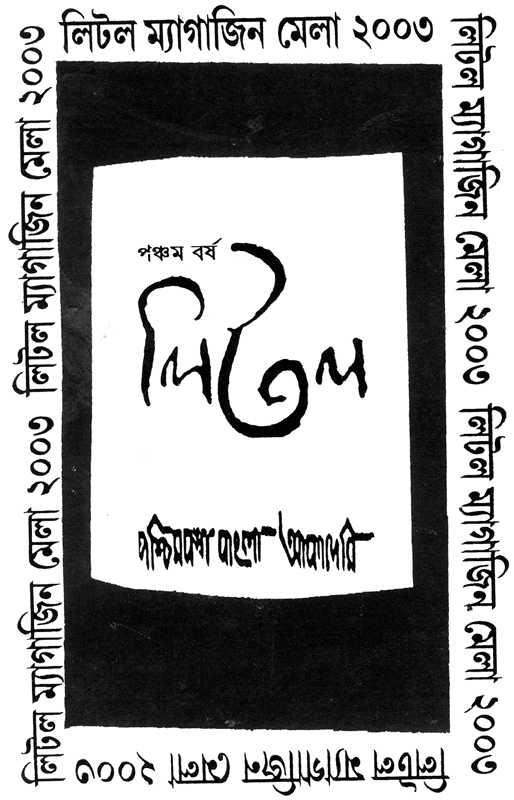 লিটল ম্যাগাজিন মেলা ২০০৩
লিটল ম্যাগাজিন মেলা ২০০৩
লিটল ম্যাগাজিন মেলা ২০০৩
পঞ্চম বর্ষ
লিটল
পশ্চিমবঙ্গ বাংলা আকাদেমি
লিটল ম্যাগাজিন মেলা ২০০৩
লিটল ম্যাগাজিন মেলা ২০০৩
লিটল ম্যাগাজিন মেলা ২০০৩